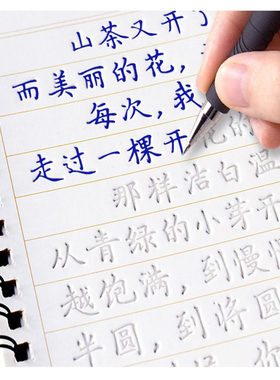 山茶又开了
而美丽的花，
每次，我
走过一棵开花的
那样洁白温
从青绿的小芽开
越饱满，到慢慢
半圆，到将圆